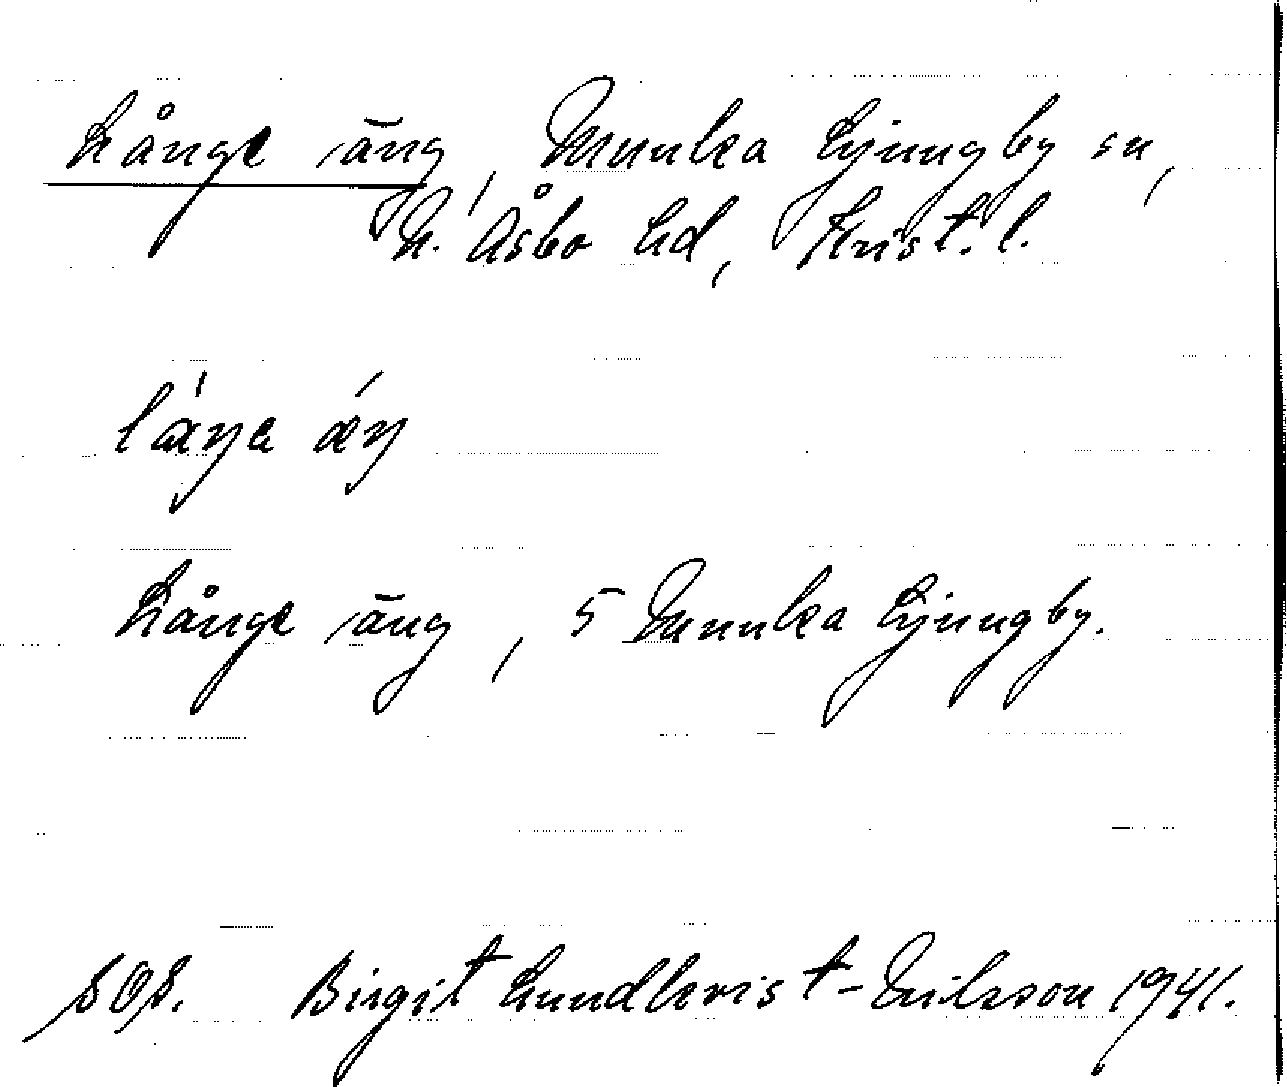 Långe äng, Munka Ljungby sn,
N. Åsbo hd, Krist. l.
láŋa ǽŋ
Långe äng, 5 Munka Ljungby.
Birgit Lundkvist-Nilsson 1941.